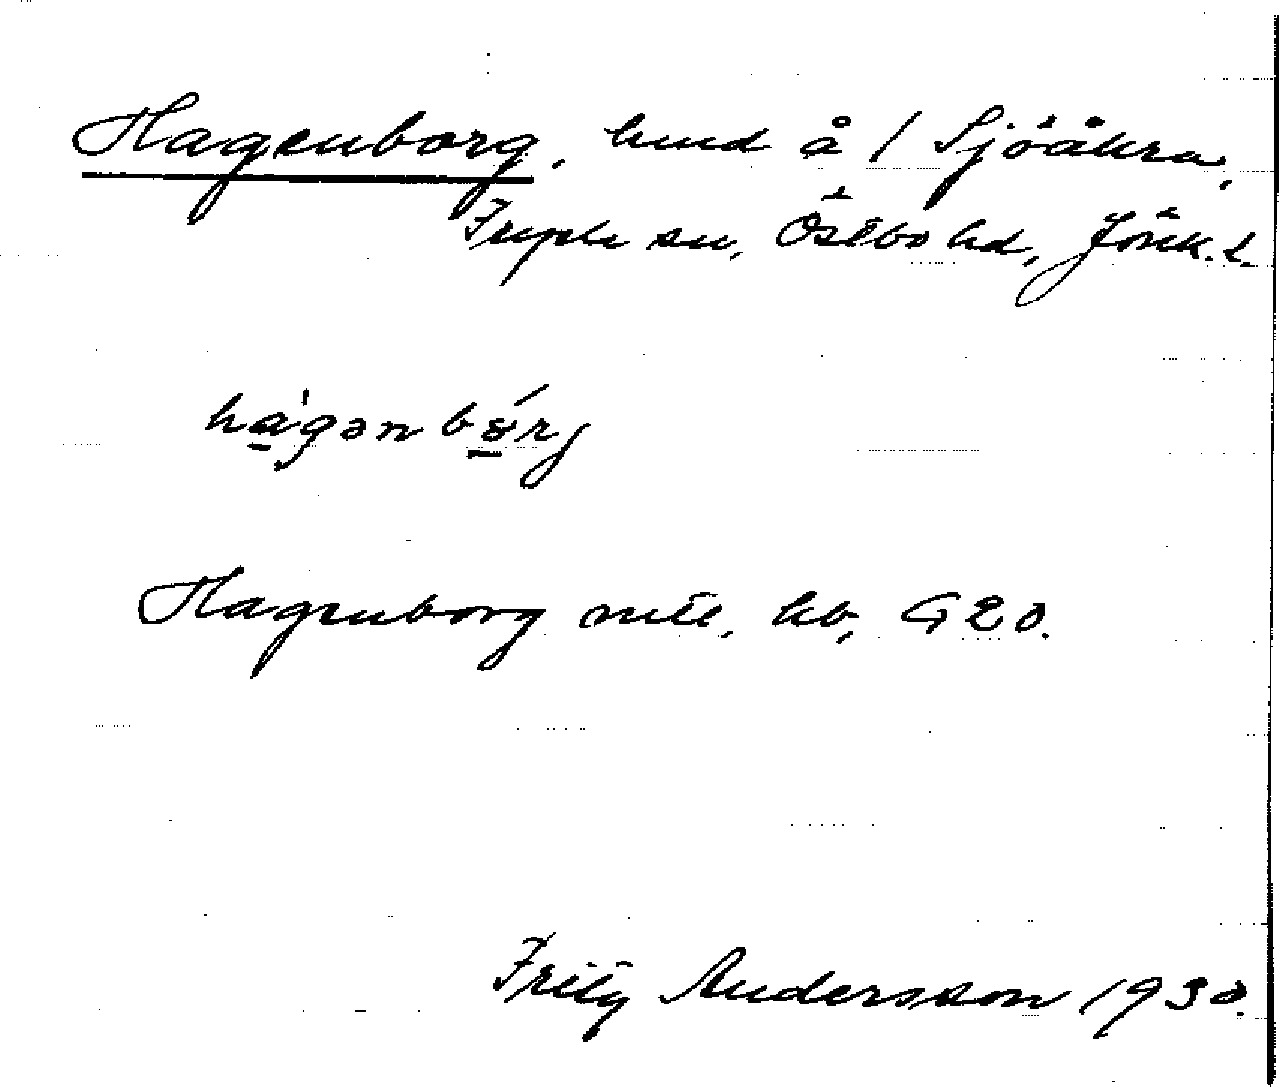 Hagenborg, lund å 1 Sjöåkra,
Tryde sn, Östbo hd, Jönk. l.
hagənbórj
Hagenborg mtl. kb, G20.
Fritz Andersson 1930.